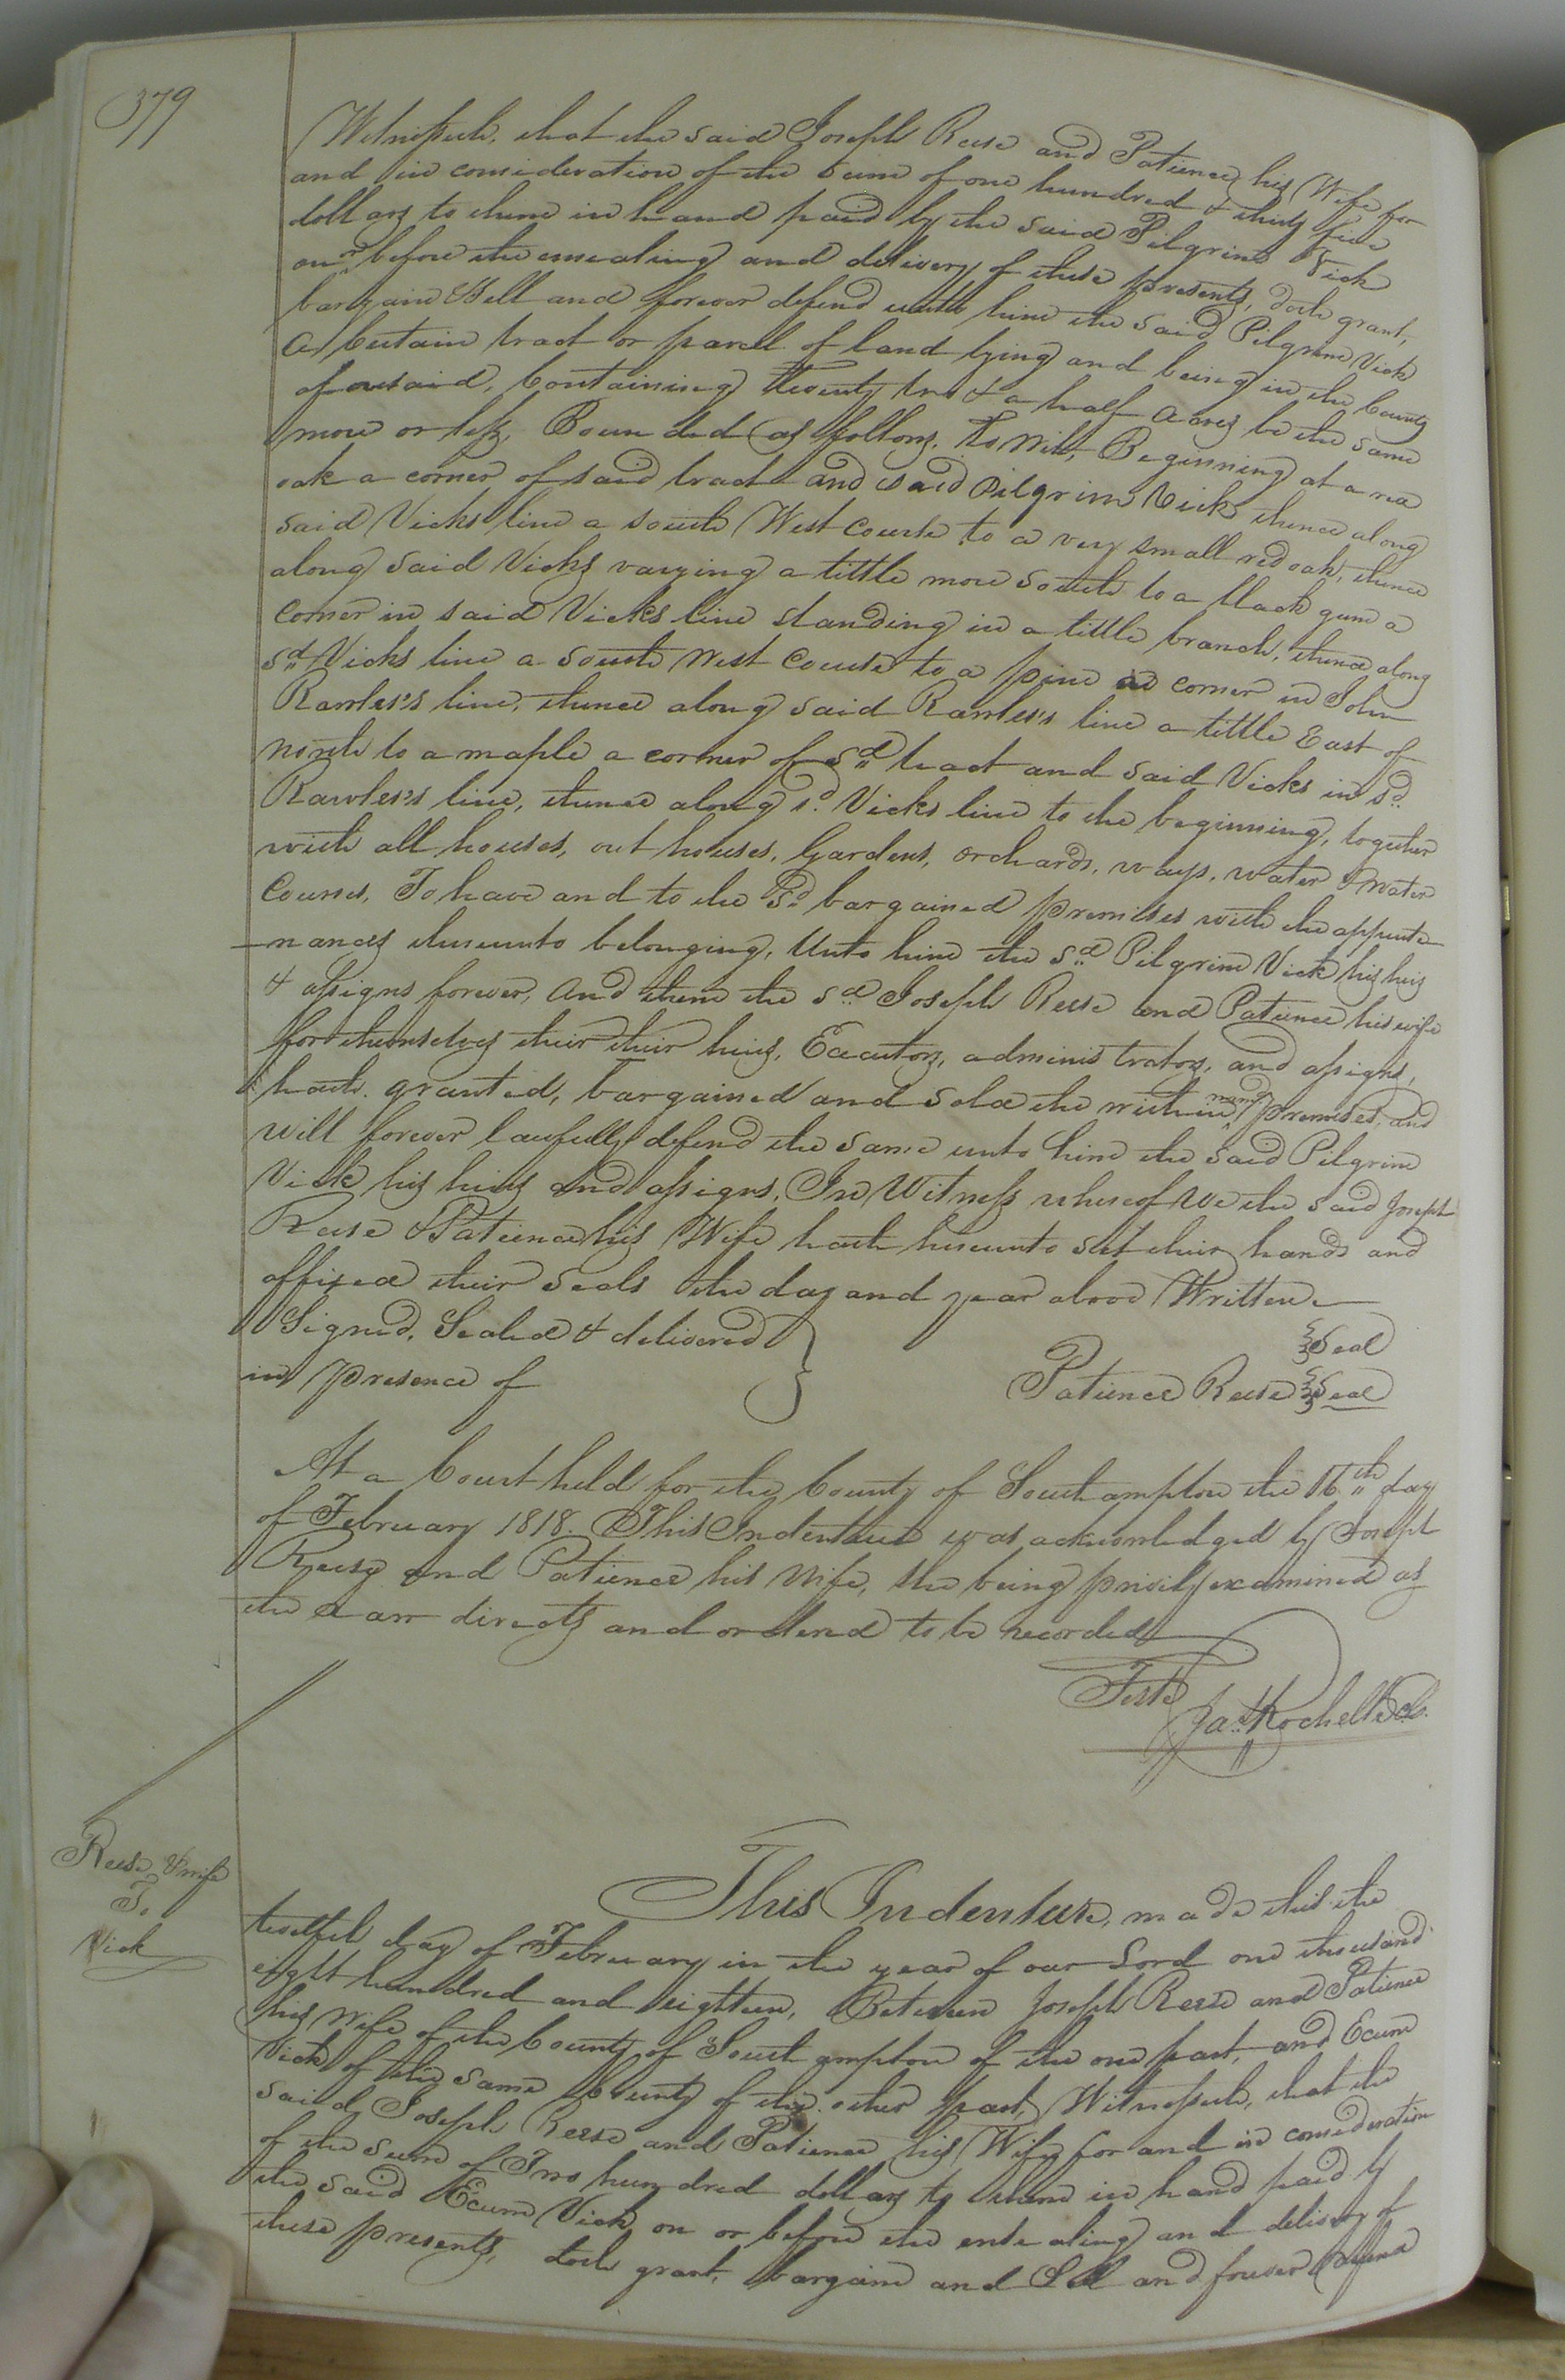 379
Witnesseth, that the said Joseph Reese and Patience his Wife for
and in consideration of the sum of one hundred & thirty five
dollars to them in hand paid by the said Pilgrim Vick
on or before the ensealing and delivery of these presents, doth grant,
bargain & Sell and forever defend unto him the said Pilgrim Vick
a certain tract or parcel of land lying and being in the County
aforesaid, Containing Twenty two & a half Acres be the same
more or less, Bounded as follows, to wit, Beginning at a red
oak a corner of said tract and said Pilgrim Vick thence along
said Vicks line a south West course to a very small red oak, thence
along said Vicks varying a little more South to a black gum a
corner in said Vicks line standing in a little branch, thence along
sd Vicks line a south West Course to a pine a corner in John
Rawles's line, thence along said Rawles's line a little East of
north to a maple a corner of sd tract and said Vicks in sd
Rawles's line, thence along sd Vicks line to the beginning, together
with all houses, out houses, Gardens, orchards, ways, water & water
Courses, To have and to the sd bargained premises with the appurte-
-nances thereunto belonging, Unto him the sd Pilgrim Vick his heirs
& assigns forever, and them the sd Joseph Reese and Patience his wife
for themselves their their heirs, Executors, administrators, and assigns,
hath granted, bargained and Sold the within named premises, and
will forever lawfully defend the same unto him the said Pilgrim
Vick his heirs and assigns, In Witness whereof We the said Joseph
Reese & Patience his Wife hath hereunto set their hands and
affixed their Seals the day and year above Written
Signed, Sealed & delivered
in presence of
Seal
Patience Reese Seal
At a Court held for the County of Southampton the 16th day
of February 1818. This Indenture was acknowledged by Joseph
Reese and Patience his Wife, she being privily examined as
the Law directs and ordered to be recorded
Teste
Jas Rochelle Cl.
Reese & wife
To
Vick
This Indenture, made this the
twelfth day of February in the year of our Lord one thousand
eight hundred and eighteen, Between Joseph Reese and Patience
his Wife of the County of Southampton of the one part, and Ecum
Vick of the same County of the other part, Witnesseth, that the
said Joseph Reese and Patience his Wife for and in consideration
of the sum of Two hundred dollars to them in hand paid by
the said Ecum Vick on or before the ensealing and delivery of
these presents, doth grant, bargain and Sell and forever defend